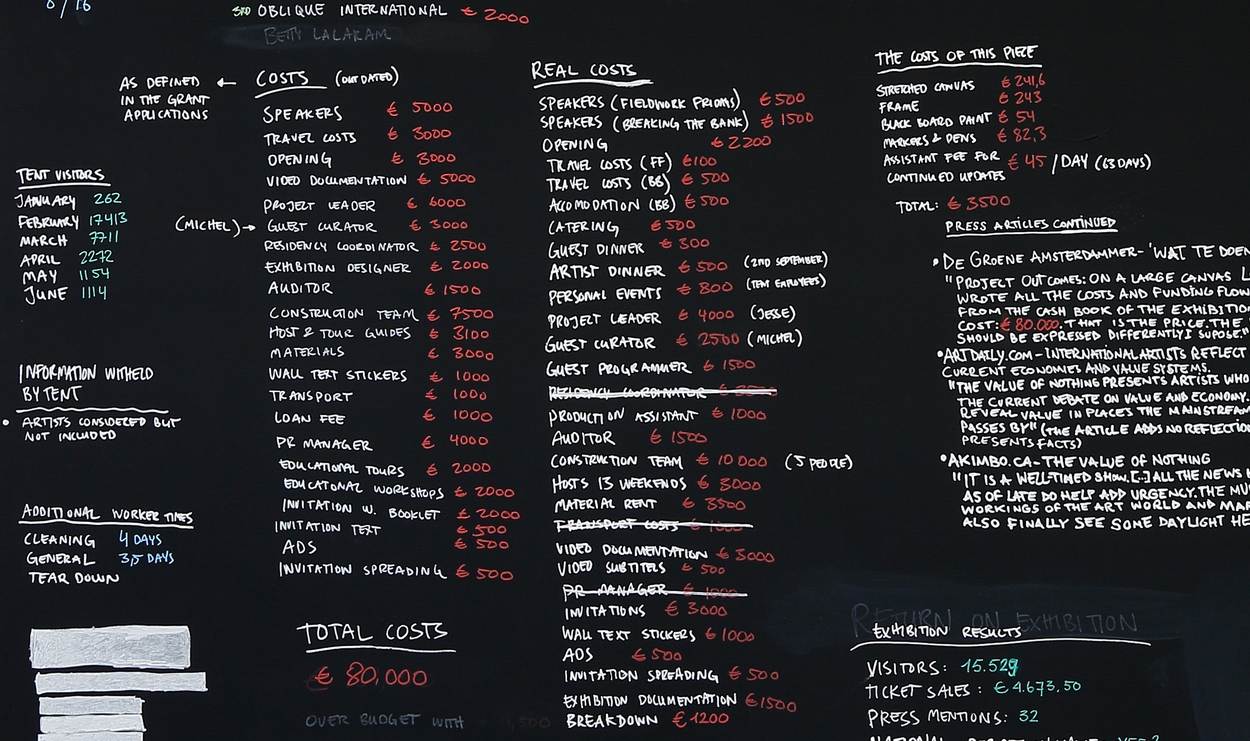 6/16
3RD OBLIQUE INTERNATIONAL € 2000
BETTY LALAKAM
AS DEFINED ←
IN THE GRANT
APPLICATIONS
TENT VISITORS
JANUARY 262
FEBRUARY 17413
MARCH 7711
APRIL 2272
MAY 1154
JUNE 1114
INFORMATION WITHELD
BY TENT
• ARTISTS CONSIDERED BUT
NOT INCLUDED
ADDITIONAL WORKER TIMES
CLEANING 4 DAYS
GENERAL 3,5 DAYS
TEAR DOWN
COSTS (OUTDATED)
SPEAKERS € 5000
TRAVEL COSTS € 3000
OPENING € 3000
VIDEO DOCUMENTATION € 5000
PROJECT LEADER € 6000
(MICHEL) → GUEST CURATOR € 3000
RESIDENCY COORDINATOR € 2500
EXHIBITION DESIGNER € 2000
AUDITOR € 1500
CONSTRUCTION TEAM € 7500
HOST & TOUR GUIDES € 3100
MATERIALS € 3000
WALL TEXT STICKERS € 1000
TRANSPORT € 1000
LOAN FEE € 1000
PR MANAGER € 4000
EDUCATIONAL TOURS € 2000
EDUCATONAL WORKSHOPS € 2000
INVITATION W. BOOKLET € 2000
INVITATION TEXT € 500
ADS € 500
INVITATION SPREADING € 500
TOTAL COSTS
€ 80,000
OVER BUDGET WITH
REAL COSTS
SPEAKERS (FIELDWORK FRIDAYS) € 500
SPEAKERS (BREAKING THE BANK) € 1500
OPENING € 2200
TRAVEL COSTS (FF) €100
TRAVEL COSTS (BB) € 500
ACCOMODATION (BB) € 500
CATERING € 500
GUEST DINNER € 300
ARTIST DINNER € 500 (2ND SEPTEMBER)
PERSONAL EVENTS € 800 (TENT EMPLOYEES)
PROJECT LEADER € 4000 (JESSE)
GUEST CURATOR € 2500 (MICHEL)
GUEST PROGRAMMER € 1500
RESIDENCY COORDINATOR €
PRODUCTION ASSISTANT € 1000
AUDITOR € 1500
CONSTRUCTION TEAM € 10 000 (5 PEOPLE)
HOSTS 13 WEEKENDS € 3000
MATERIAL RENT € 3500
TRANSPORT COSTS €
VIDEO DOCUMENTATION € 3000
VIDEO SUBTITELS € 500
PR MANAGER €
INVITATIONS € 3000
WALL TEXT STICKERS € 1000
ADS € 500
INVITATION SPREADING € 500
EXHIBITION DOCUMENTATION €1500
BREAKDOWN € 1200
THE COSTS OF THIS PIECE
STRETCHED CANVAS € 241,6
FRAME € 243
BLACK BOARD PAINT € 54
MARKERS & PENS € 82,3
ASSISTANT FEE FOR € 45 / DAY (63 DAYS)
CONTINUED UPDATES
TOTAL: € 3500
PRESS ARTICLES CONTINUED
• DE GROENE AMSTERDAMMER - 'WAT TE DOEN
"PROJECT OUTCOMES: ON A LARGE CANVAS L
WROTE ALL THE COSTS AND FUNDING FLOW
FROM THE CASH BOOK OF THE EXHIBITIO
COST: € 80.000. THAT IS THE PRICE. THE
SHOULD BE EXPRESSED DIFFERENTLY I SUPOSE."
• ARTDAILY.COM - INTERNATIONAL ARTISTS REFLECT
CURRENT ECONOMIES AND VALUE SYSTEMS.
"THE VALUE OF NOTHING PRESENTS ARTISTS WHO
THE CURRENT DEBATE ON VALUE AND ECONOMY.
REVEAL VALUE IN PLACES THE MAINSTREAM
PASSES BY" (THE ARTICLE ADDS NO REFLECTIO
PRESENTS FACTS)
• AKIMBO.CA - THE VALUE OF NOTHING
"IT IS A WELL-TIMED SHOW. [...] ALL THE NEWS
AS OF LATE DO HELP ADD URGENCY. THE
WORKINGS OF THE ART WORLD AND MAR
ALSO FINALLY SEE SOME DAYLIGHT HE
RETURN ON EXHIBITION
EXHIBITION RESULTS
VISITORS: 15.529
TICKET SALES: € 4.673,50
PRESS MENTIONS: 32